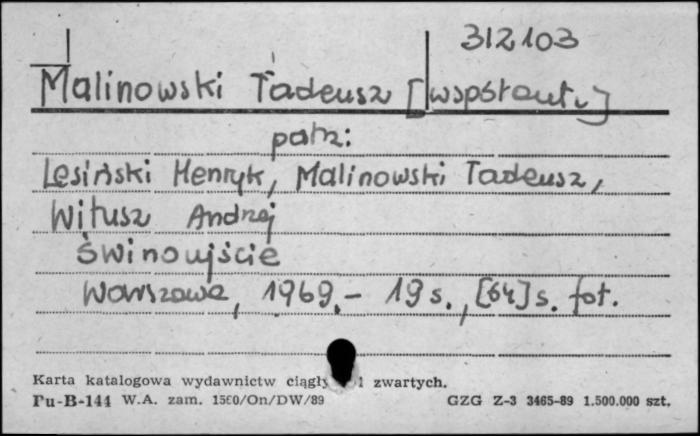 312103
Malinowski Tadeusz [współaut.]
patrz:
Lesiński Henryk, Malinowski Tadeusz,
Witusz Andrzej
Świnoujście
Warszawa, 1969.- 19 s., [64] s. fot.
Karta katalogowa wydawnictw ciągły i zwartych.
Pu-B-144 W.A. zam. 1560/On/DW/89 GZG Z-3 3465-89 1.500.000 szt.